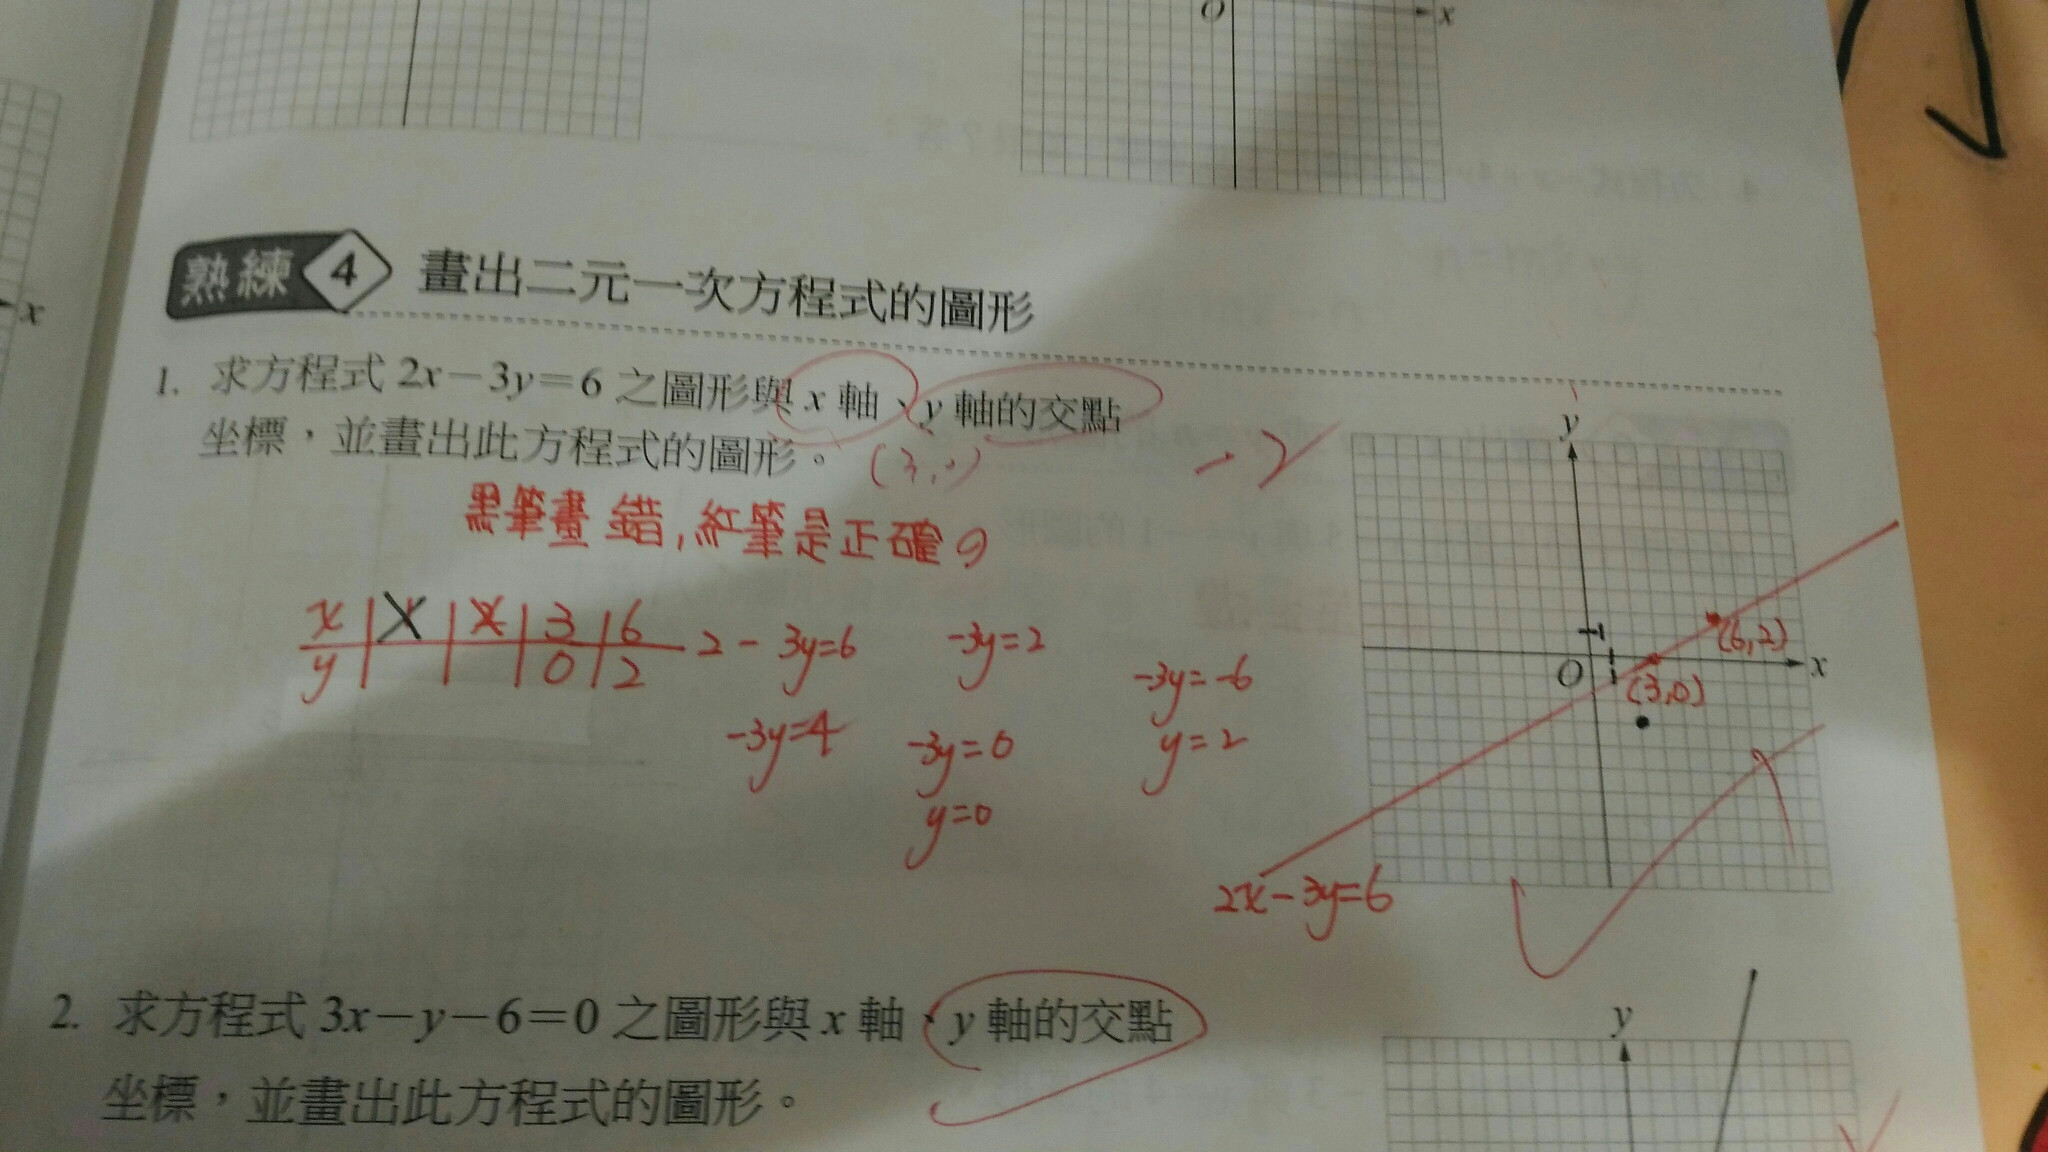 O x
x
熟練 4 畫出二元一次方程式的圖形
1. 求方程式 2x-3y=6 之圖形與 x 軸、y 軸的交點
坐標，並畫出此方程式的圖形。 (3,0)
黑筆畫錯,紅筆是正確
y
x 3 6
y 0 2
2-3y=6 -3y=2
-3y=4 -3y=0
y=0
-3y=-6
y=2
1
O 1 x
(6,2)
(3,0)
2x-3y=6
2. 求方程式 3x-y-6=0 之圖形與 x 軸、y 軸的交點
坐標，並畫出此方程式的圖形。
y